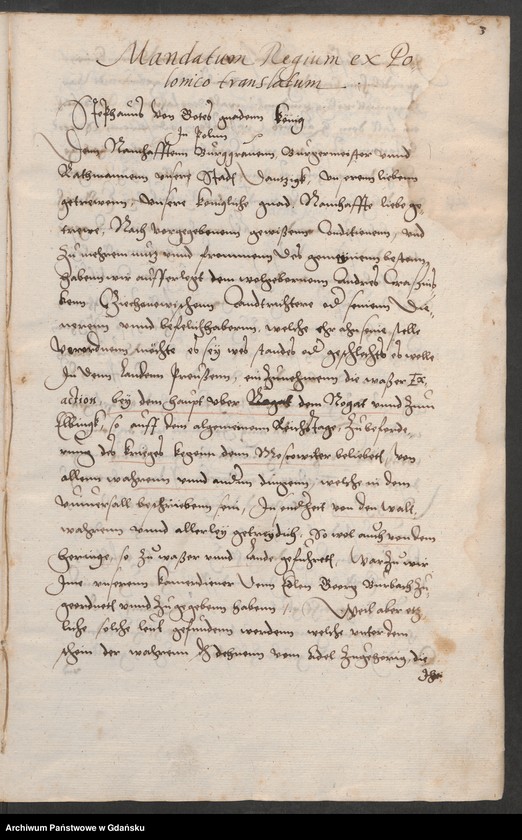 3
Mandatum Regium ex Po
lonico translatum
Stephanus von Gotes gnaden König
In Polen
Dem Namhafftem Burggrauenn, Bürgermeister vnnd
Rathmannenn vnserr Stadt Dantzigk, vnserenn liebenn
getrewenn, vnsere Königliche gnad, Namhaffte liebe ge,
trewe, Nach vorgegebenenn gewissenn Conditionenn, vnd
zu mehrem nutz vnnd frommenn des gemeinenn bestenn,
habenn wir aufferlegt dem wolgebornenn Andres
kenn, Landtrichtere oder seinenn die,
nerenn vnnd befelichhabernn, welche ehr ahn seine stelle
verordnenn möchte es sey wes standes oder geschlechts es welle
In denn Landenn Preussenn, ein zunehmenn die wasser Ex,
action, bey dem haupt vber dem Nogat vnnd zum
Elbingk, so auff dem algemeinenn Reichstage, zu beforde,
rung des krieges kegenn denn Moscowiter beliebett, von
allenn wahrenn vnnd andern dingenn, welche in dem
vniuersall beschriebenn sein, In vnd von den Walt,
wahrenn vnnd allerley getreydich, So wol auch von dem
heringe, so zu wasser vnnd lande gefuhrett, warzu wir
Ime vnserenn Kamerdiener denn Edlen Georg Burbach zu
geordnett vnnd zugegebenn habenn, Weil aber etz,
liche solche leut gefundenn werdenn welche vnter dem
schein der wahrenn denenn vom Adel zugehorig, die
Ihr
Archiwum Państwowe w Gdańsku